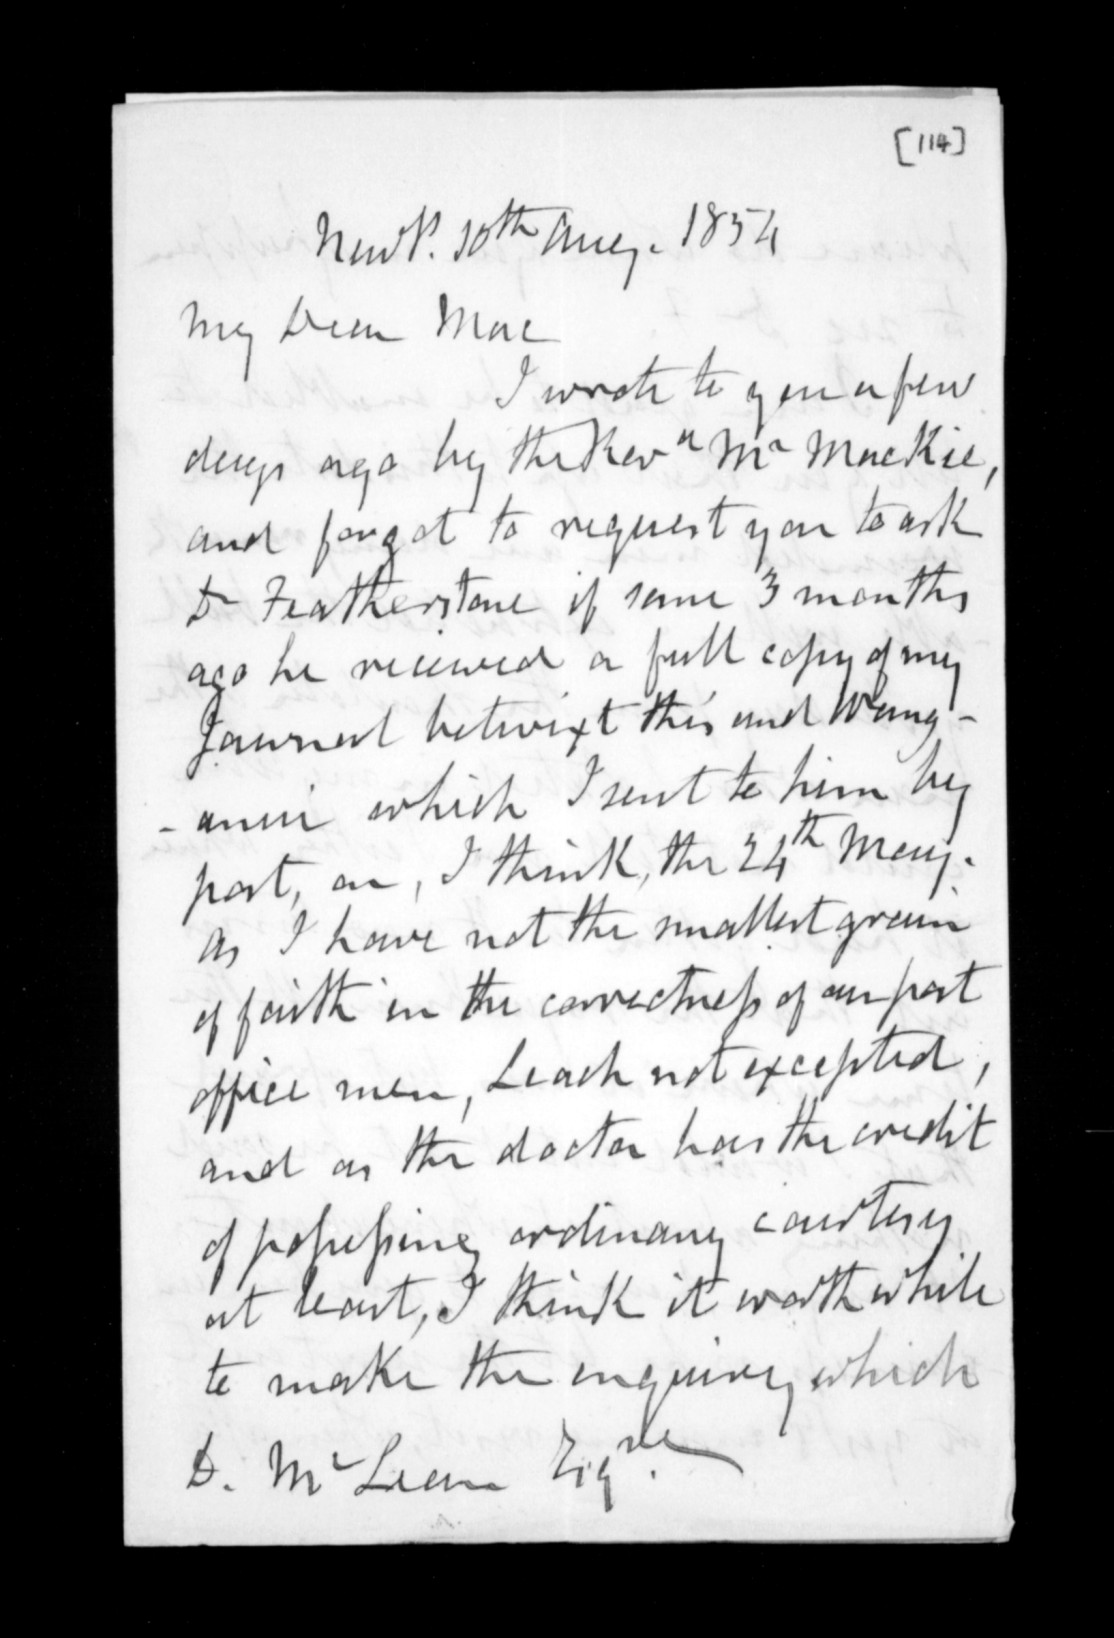 [114]
New P. 10th Aug. 1854
My Dear Mac
I wrote to you a few
days ago by the Revd Mr MacKie,
and forgot to request you to ask
Dr Featherstone if some 3 months
ago he received a full copy of my
Journal betwixt this and Wang-
-anui which I sent to him by
post, on, I think, the 24th May.
As I have not the smallest grain
of faith in the correctness of our post
office men, Leach not excepted,
and as the doctor has the credit
of possessing ordinary courtesy
at least, I think it worth while
to make the enquiry which
D. McLean Esqre.